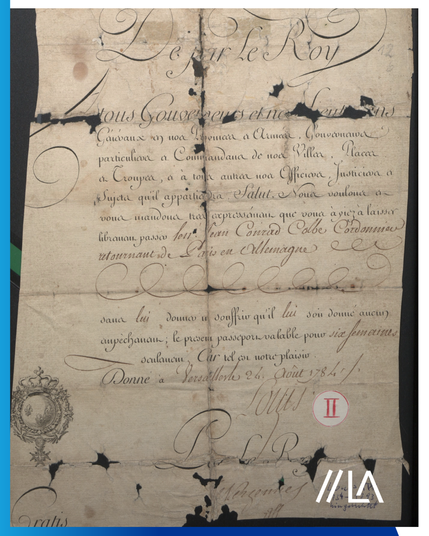 De par Le Roy
A tous Gouverneurs et nos Lieutenans
Généraux en nos Provinces & Armées, Gouverneurs
particuliers & Commandans de nos Villes, Places
& Troupes, & à tous autres nos Officiers, Justiciers &
Sujets qu'il appartiendra Salut. Nous voulons &
vous mandons très expressément que vous ayiez à laisser
librement passer Jean Conrad Colbe Cordonnier
retournant de Paris en Allemagne
sans lui donner ni souffrir qu'il lui soit donné aucun
empêchement; le present passeport valable pour six semaines
seulement, Car tel est notre plaisir
Donné à Versailles le 24 Août 1784
Louis
II
Par Le Roy
Gratis
//LA